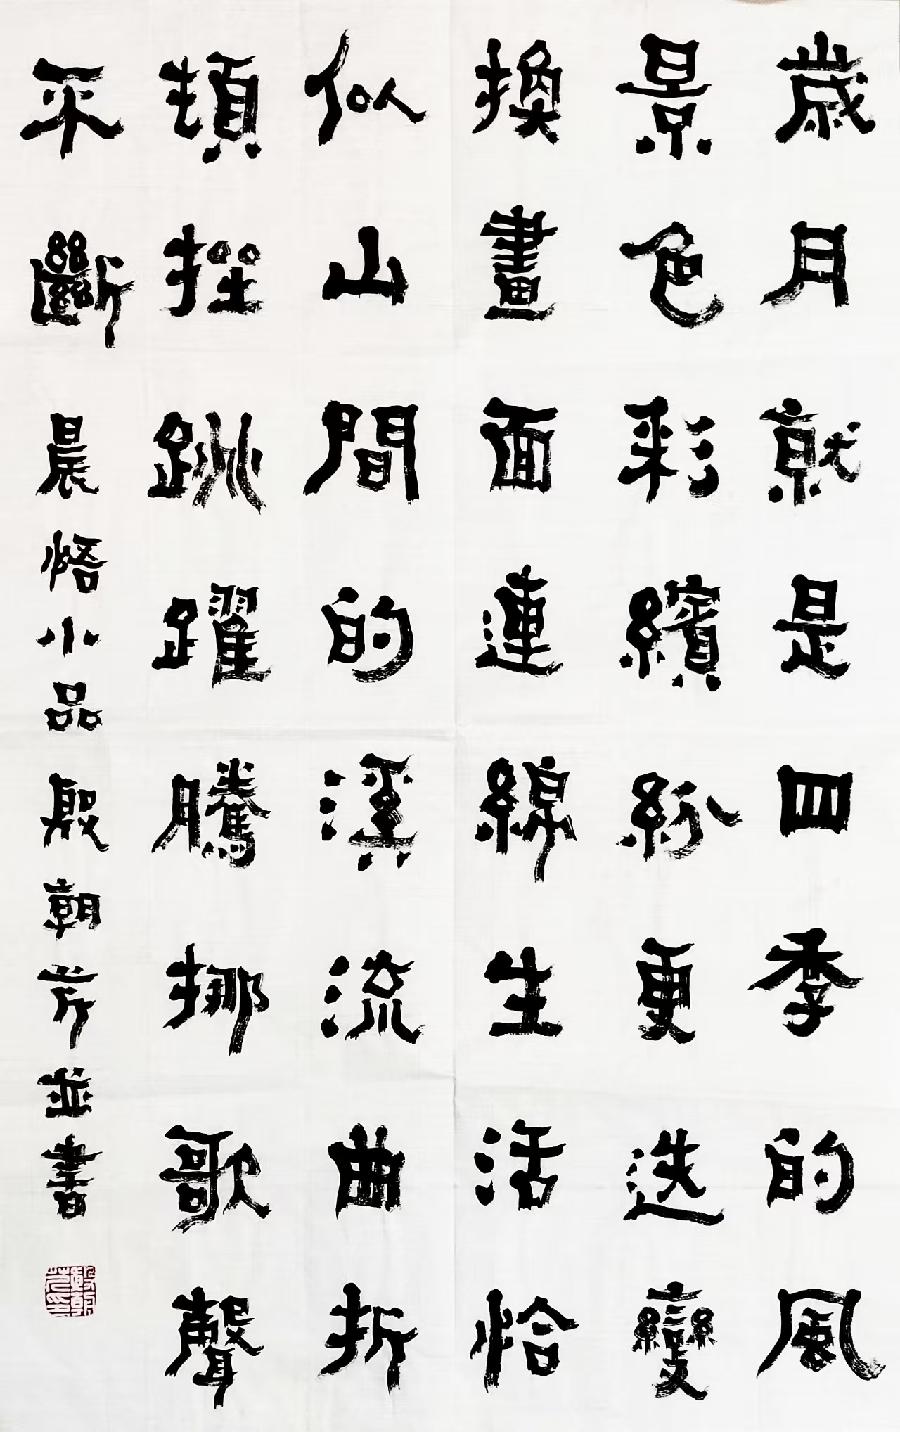 歲月就是四季的風
景色彩繽紛更迭變
換畫面連綿生活恰
似山間的溪流曲折
頓挫跳躍騰挪歌聲
不斷 晨悟小品殷朝芹並書